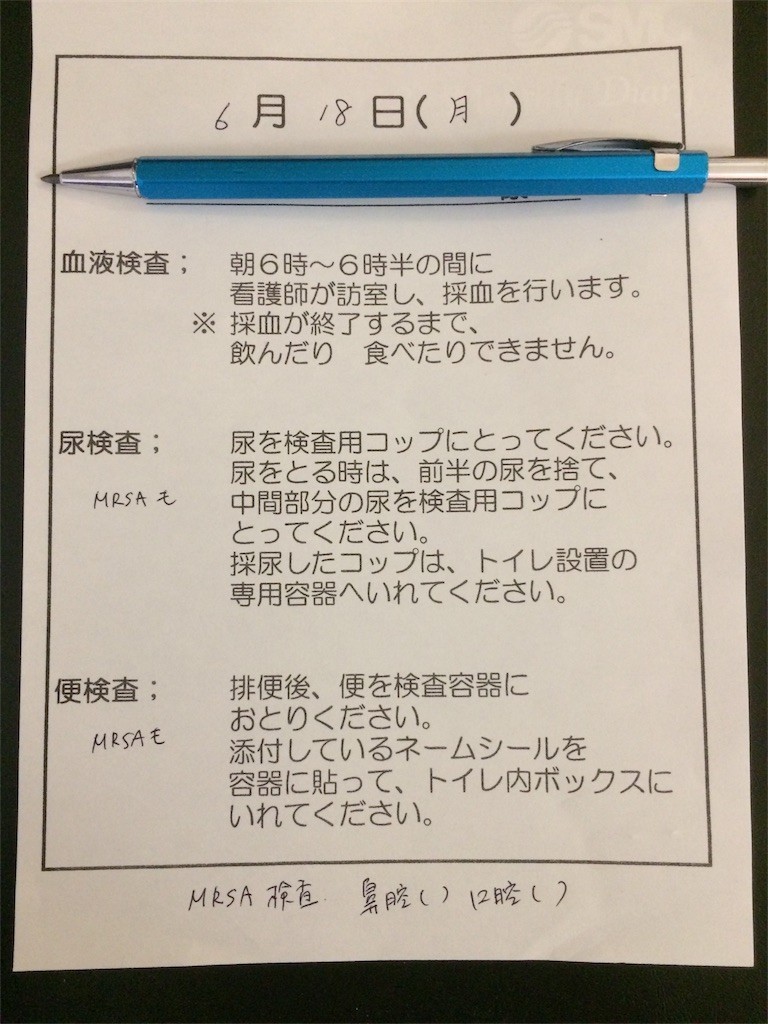 6月18日(月)
血液検査; 朝6時~6時半の間に
看護師が訪室し、採血を行います。
※ 採血が終了するまで、
飲んだり 食べたりできません。
尿検査; 尿を検査用コップにとってください。
尿をとる時は、前半の尿を捨て、
MRSAモ 中間部分の尿を検査用コップに
とってください。
採尿したコップは、トイレ設置の
専用容器へいれてください。
便検査; 排便後、便を検査容器に
おとりください。
MRSAモ 添付しているネームシールを
容器に貼って、トイレ内ボックスに
いれてください。
MRSA 検査 鼻腔( ) 口腔( )